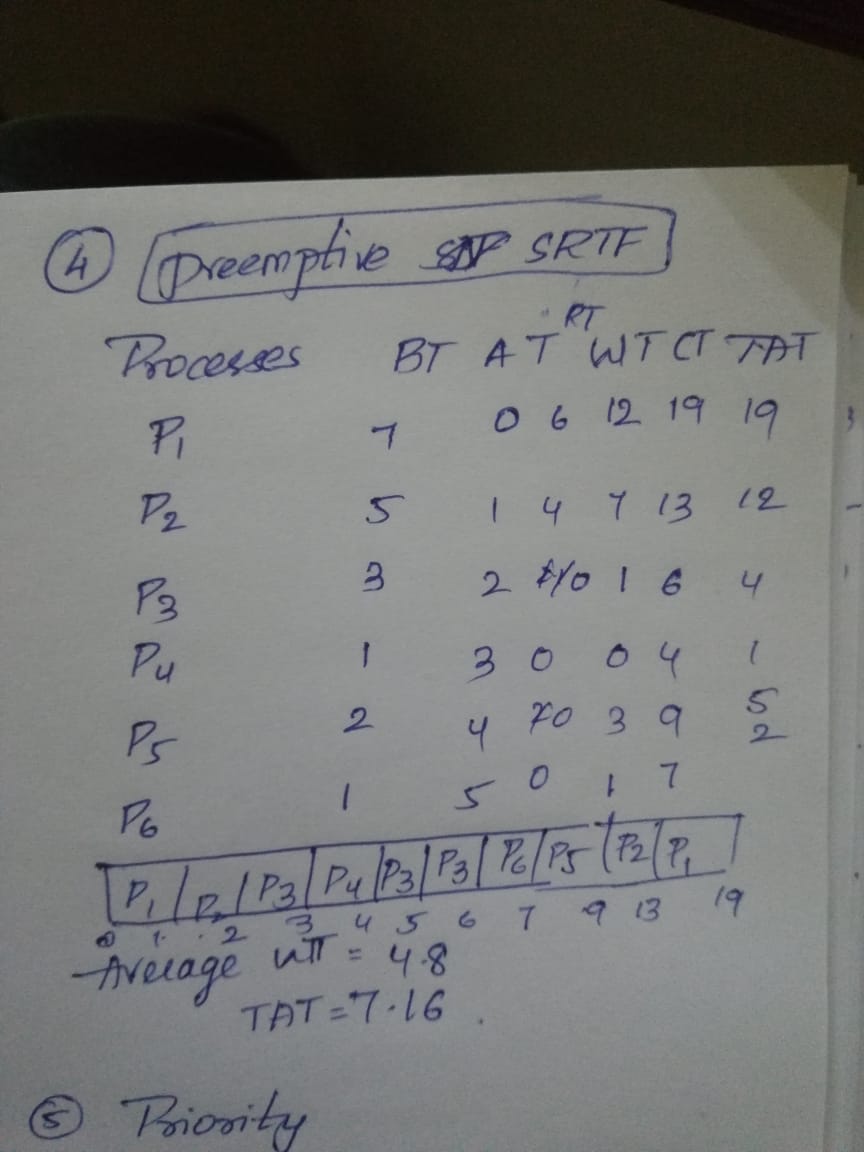 4 Preemptive SRTF
RT
Processes BT AT WT CT TAT
P1 7 0 6 12 19 19
P2 5 1 4 7 13 12
P3 3 2 0 1 6 4
P4 1 3 0 0 4 1
P5 2 4 0 3 9 5
P6 1 5 0 1 7 2
P1 P2 P3 P4 P3 P3 P6 P5 P2 P1
0 1 2 3 4 5 6 7 9 13 19
Average WT = 4.8
TAT = 7.16
5 Priority